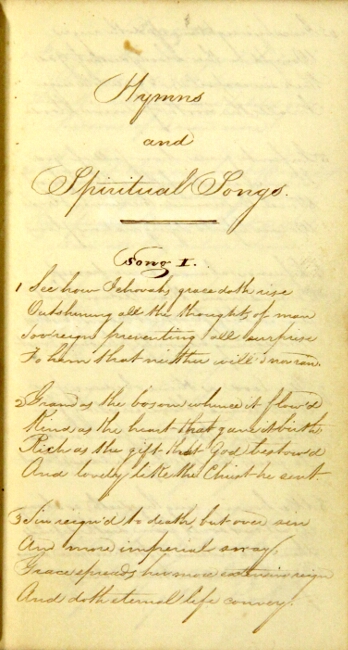 Hymns
and
Spiritual Songs.
Song I.
1 See how Jehovah's grace doth rise
Outshining all the thoughts of man
Sov'reign preventing all surprise
To him that neither will's nor ran.
2 Grand as the bosom whence it flow'd
Kind as the heart that gave it birth
Rich as the gift that God bestow'd
And lovely like the Christ he sent.
3 Sin reign'd to death, but over sin
An more imperial sway,
Grace spreads her more extensive reign
And doth eternal life convey.